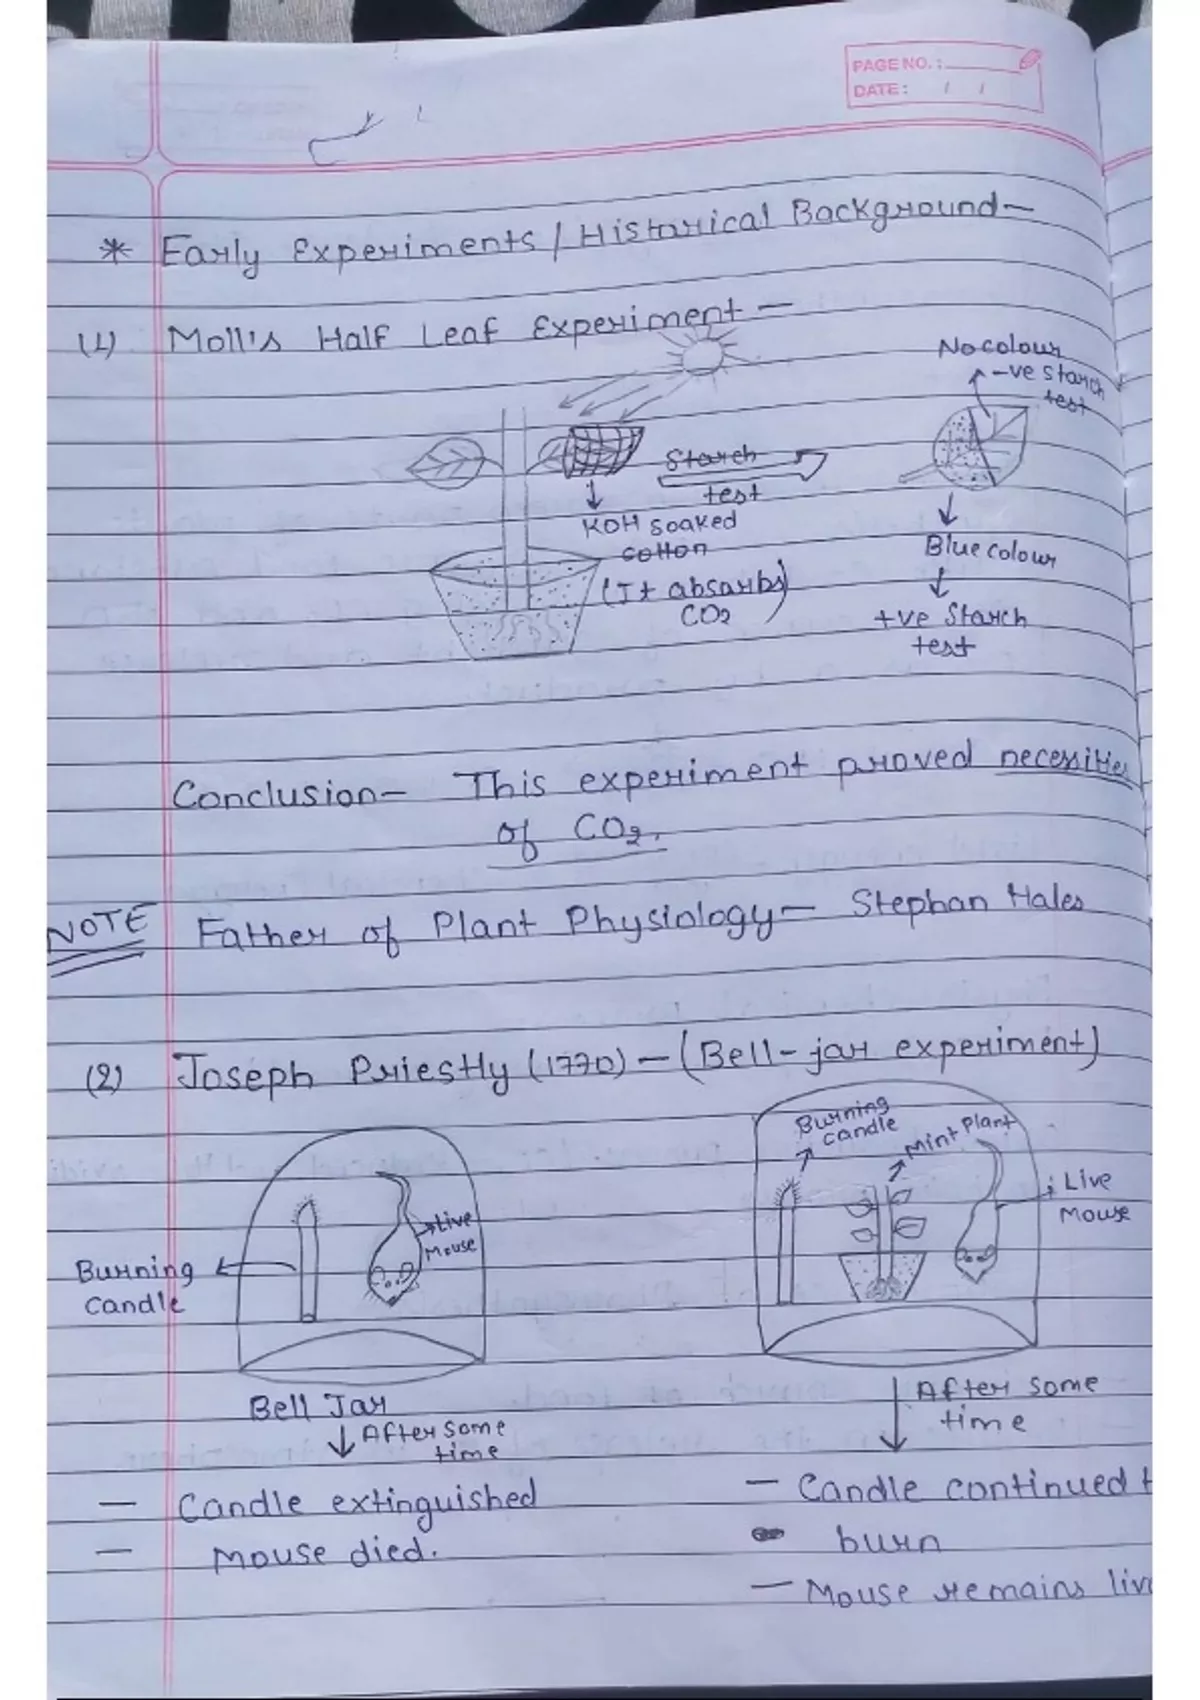 PAGE NO. :
DATE: / /
* Early Experiments / Historical Background -
(1) Moll's Half Leaf Experiment -
No colour
-ve starch
test
Starch
test
KOH soaked
cotton
(It absorbs)
CO2
Blue colour
+ve Starch
test
Conclusion - This experiment proved necessities
of CO2.
NOTE Father of Plant Physiology - Stephan Hales
(2) Joseph Priestly (1770) - (Bell-jar experiment)
Burning
candle
Mint Plant
Live
Mouse
Live
Mouse
Burning
candle
Bell Jar
After some
time
After some
time
- Candle extinguished
- Mouse died.
- Candle continued t
burn
- Mouse remains live